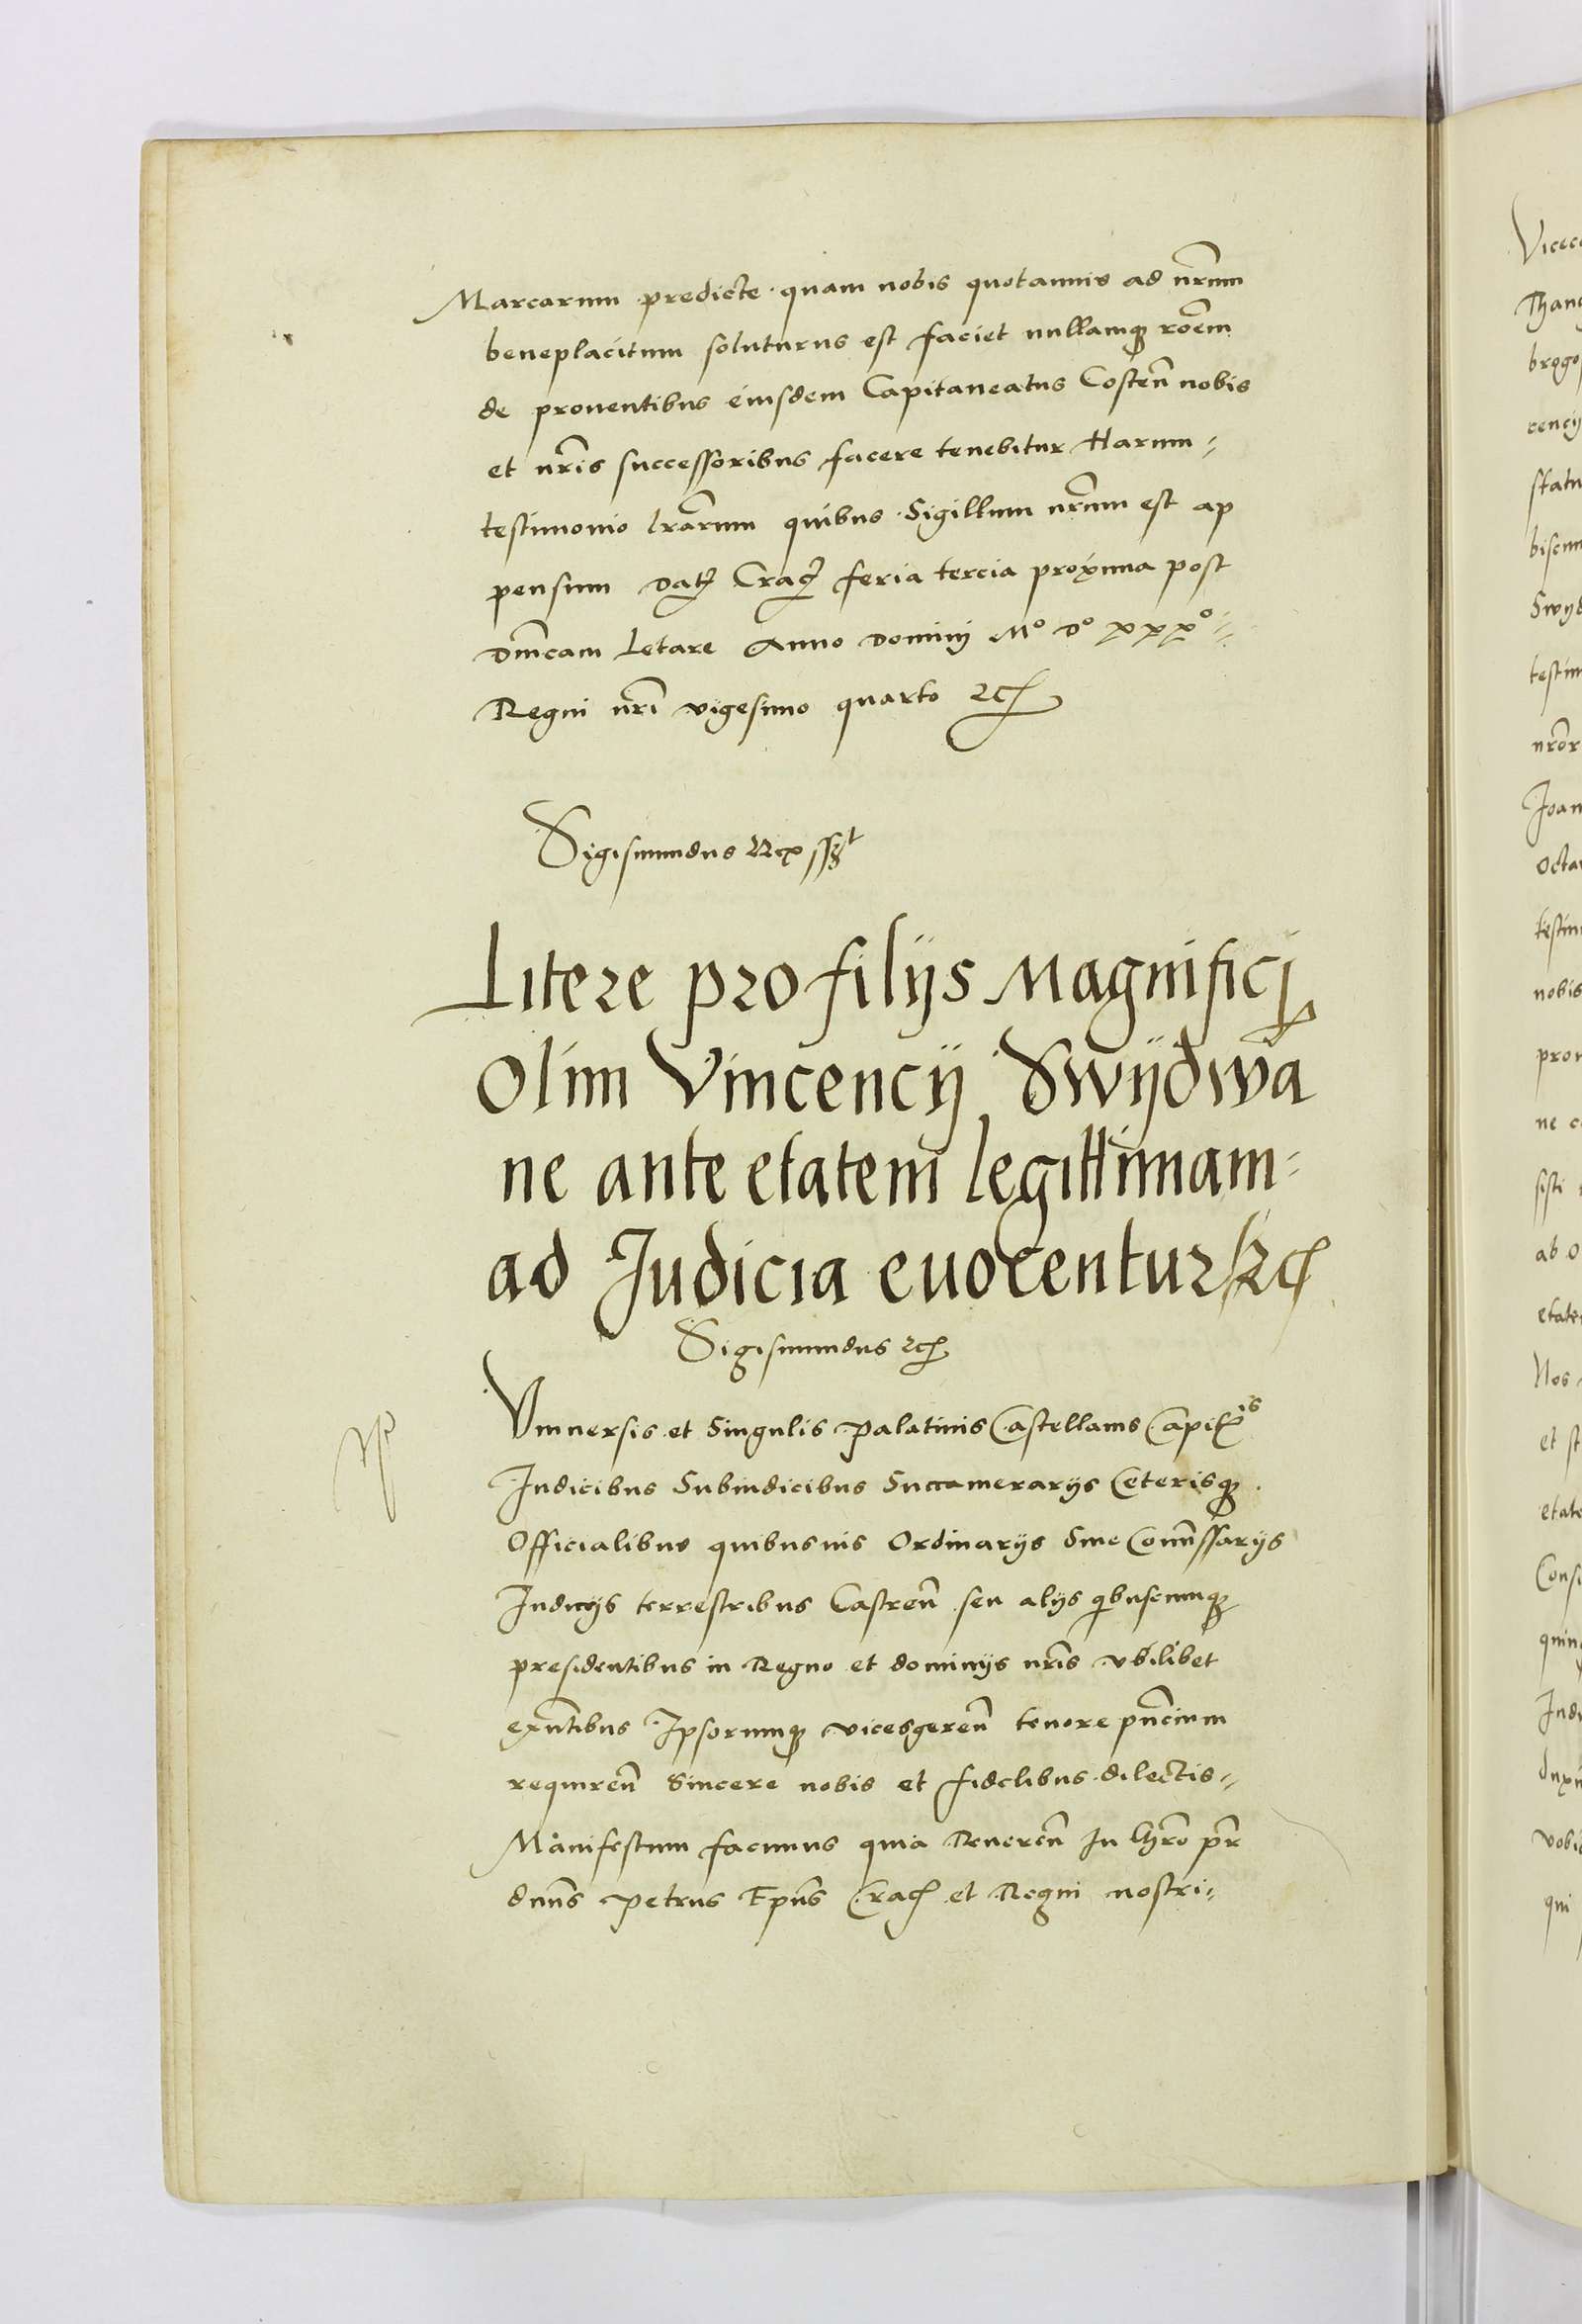 Marcarum predicte quam nobis quotannis ad nrm̄um
beneplacitum soluturus est faciet nullamq₃ roēm
de prouentibus eiusdem Capitaneatus Costen̄ nobis
et nr̄is successoribus facere tenebitur Harum -
testimonio lr̄arum quibus Sigillum nr̄um est ap
pensum Dat Crac feria tercia proxima post
Dn̄icam Letare Anno Dominj Mº Dº xxxº
Regni nr̄i vigesimo quarto ꝛc
Sigismundus Rex sst
Litere pro filijs Magnificj
Olim Vincencij Swijdwa
ne ante etatem legittimam -
ad Judicia euocentur ꝛc
Sigismundus ꝛc
Vniuersis et Singulis Palatinis Castellanis Capitis
Judicibus Subiudicibus Succamerarijs Ceterisq₃
Officialibus quibusuis Ordinarijs Siue Com̄issarijs
Judicijs terrestribus Castren̄ seu alijs qibuscumq₃
presidentibus in Regno et dominijs nr̄is vbilibet
exn̄tibus Ipsorumq₃ vicesgeren̄ tenore pn̄cium
requiren̄ Sincere nobis et fidelibus dilectis -
Manifestum facimus quia Reueren̄ In Chr̄o pr̄
dnn̄s Petrus Ep̄us Crac et Regni nostri -
Vicec
Thano
brogo
cencij
statu
biscum
Swyd
testim
nror̄
Joan
octa
testim
nobis
pro
ne c
sisti
ab o
etate
Nos
et st
etate
Cons
quin
Judi
duxi
vobis
qui